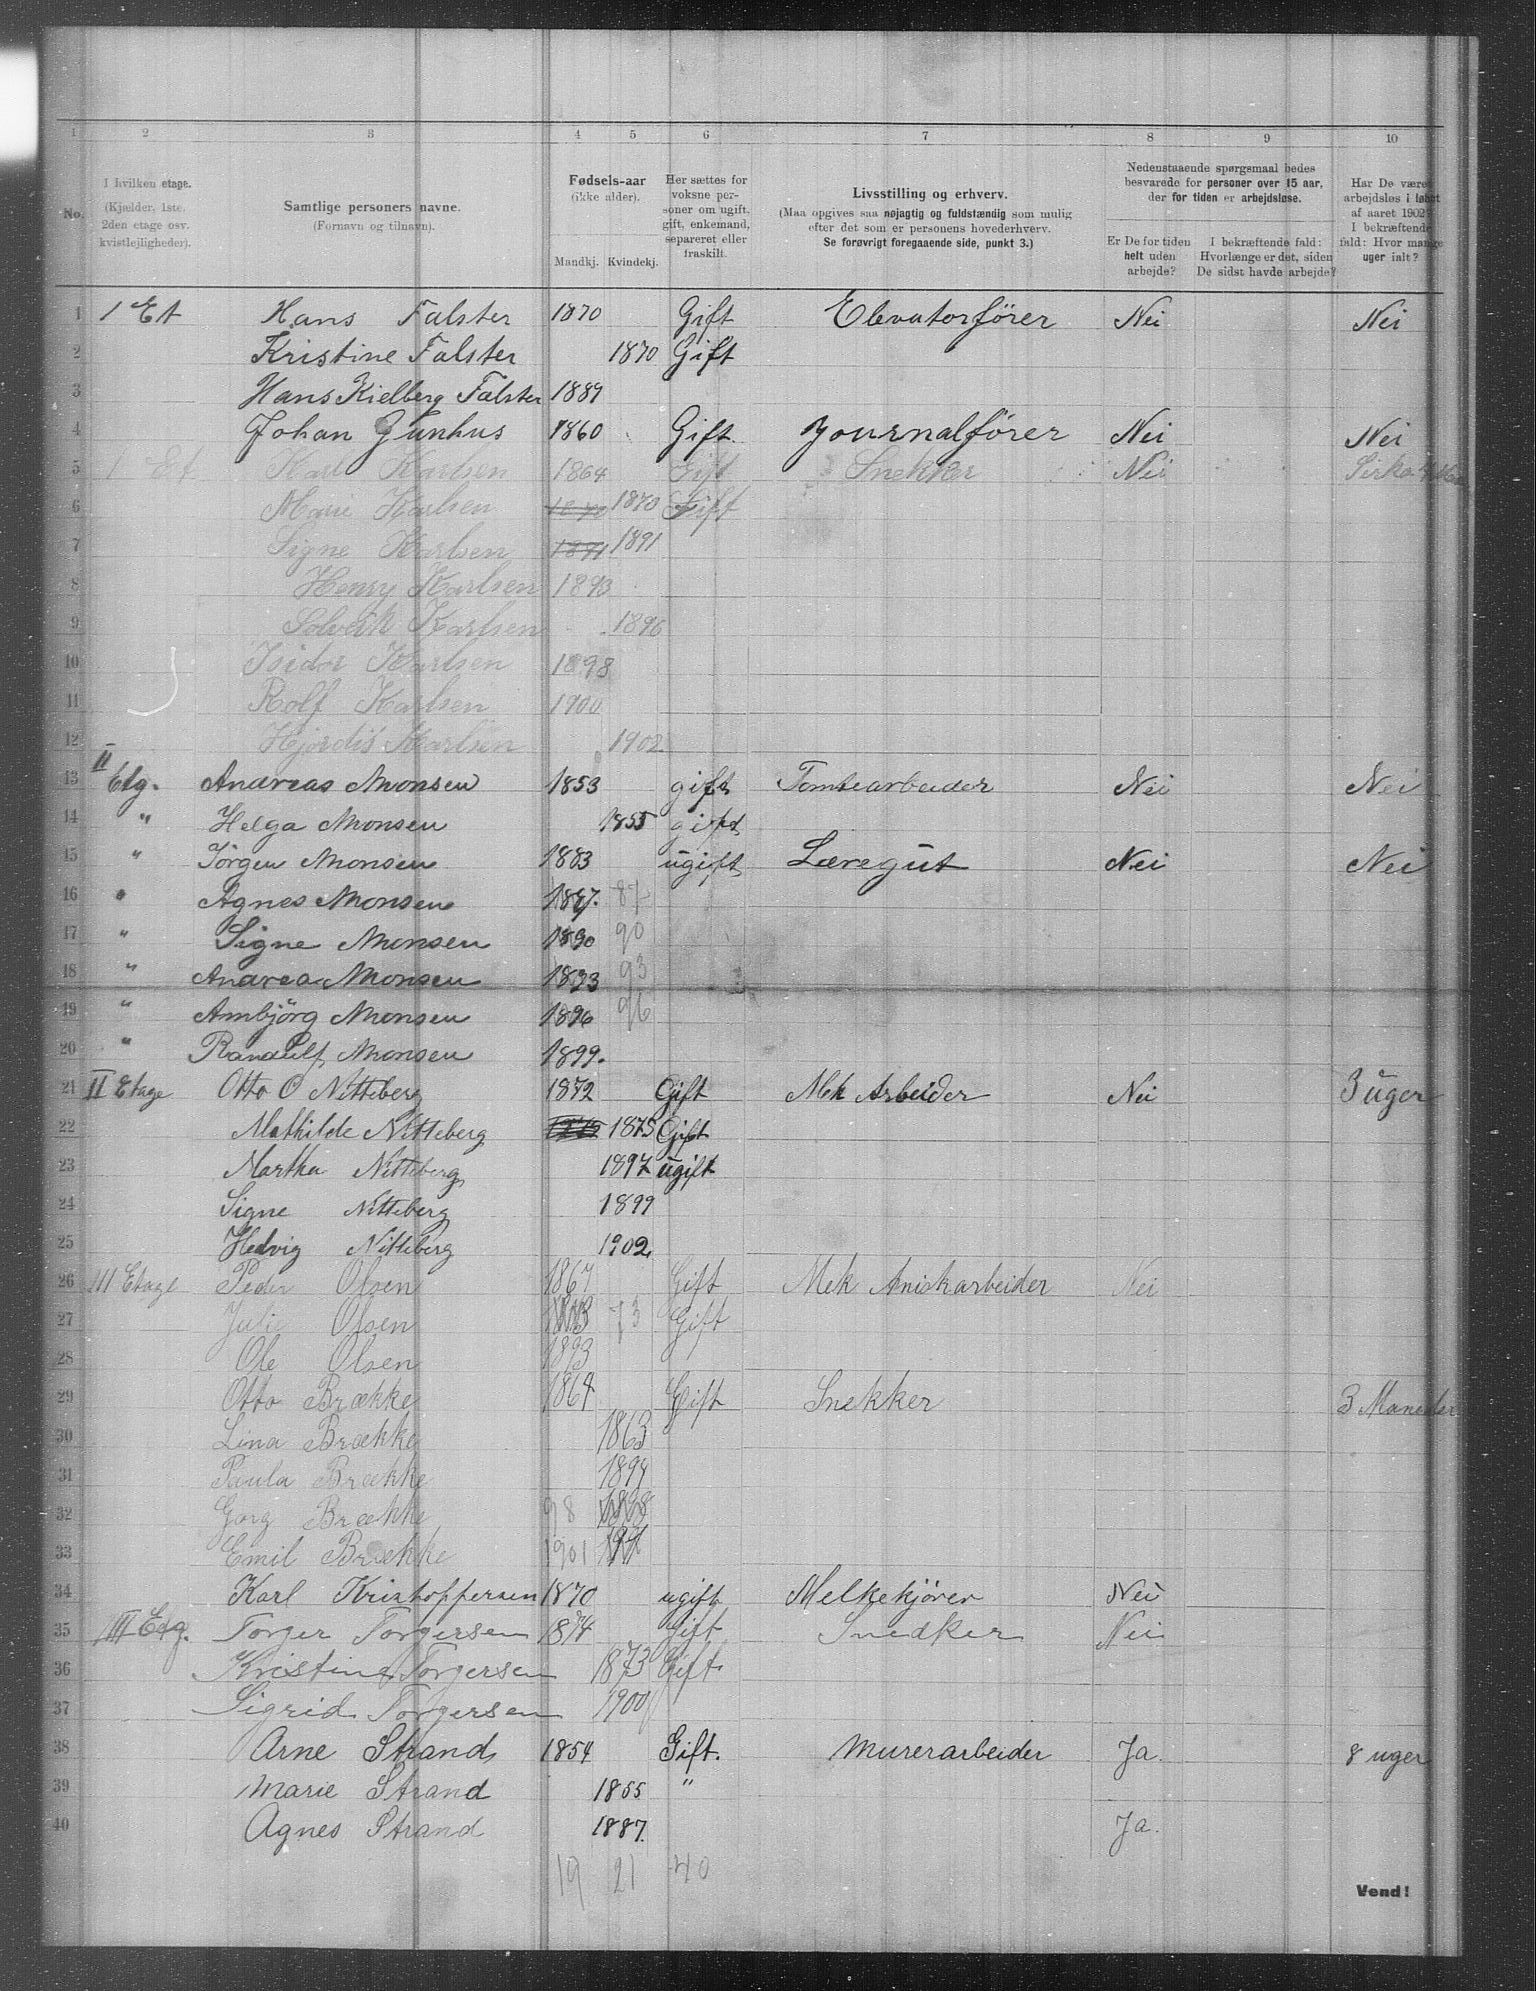 1 2 3 4 5 6 7 8 9 10
No.
I hvilken etage.
(Kjælder, 1ste, 2den etage osv. kvistlejligheder).
Samtlige personers navne.
(Fornavn og tilnavn).
Fødsels-aar
(ikke alder).
Mandkj. Kvindekj.
Her sættes for voksne personer om ugift, gift, enkemand, separeret eller fraskilt.
Livsstilling og erhverv.
(Maa opgives saa nøjagtig og fuldstændig som mulig efter det som er personens hovederhverv.
Se forøvrigt foregaaende side, punkt 3.)
Nedenstaaende spørgsmaal bedes besvarede for personer over 15 aar, der for tiden er arbejdsløse.
Er De for tiden helt uden arbejde?
I bekræftende fald: Hvorlænge er det, siden De sidst havde arbejde?
Har De være arbejdsløs i løbet af aaret 1902? I bekræftende fald: Hvor mange uger ialt?
1 1 Et Hans Falster 1870 Gift Elevatorfører Nei Nei
2 Kristine Falster 1870 Gift
3 Hans Kielberg Falster 1889
4 Johan Gunhus 1860 Gift. Journalfører Nei Nei
5 1 Et Karl Karlsen 1864 Gift Snekker Nei Sirka
6 Marie Karlsen 1870 1870 Gift
7 Signe Karlsen 1891 1891
8 Henry Karlsen 1893
9 Solveik Karlsen 1896
10 Isidor Karlsen 1898
11 Rolf Karlsen 1900
12 Hjørdis Karlsen 1902
13 II Etg. Andreas Monsen 1853 gift Tomtearbeider Nei Nei
14 " Helga Monsen 1855 gift
15 " Jørgen Monsen 1883 ugift Læregut Nei Nei
16 " Agnes Monsen 1887. 87
17 " Signe Monsen 1890 90
18 " Andrea Monsen 1893 93
19 " Ambjörg Monsen 1896 96
20 " Randulf Monsen 1899.
21 II Etage Otto O Nitteberg 1872 Gift Mek Arbeider Nei 3 uger
22 Mathilde Nitteberg 1875 Gift
23 Martha Nitteberg 1897 ugift
24 Signe Nitteberg 1899
25 Hedvig Nitteberg 1902
26 III Etage Peder Olsen 1867 Gift Mek Aniskarbeider Nei
27 Julie Olsen 1873 73 Gift
28 Ole Olsen 1893
29 Otto Brække 1864 Gift Snekker 3 Maneder
30 Lina Brække 1863
31 Paula Brække 1894
32 Gorg Brække 98 1898
33 Emil Brække 1901
34 Karl Kristoppersen 1870 ugift Melkekjörer Nei
35 III Etg. Torger Torgersen 1874 Gift Snedker Nei
36 Kristine Torgersen 1873 Gift
37 Sigrid Torgersen 1900
38 Arne Strand 1854 Gift. Murerarbeider Ja. 8 uger
39 Marie Strand 1855 "
40 Agnes Strand 1887. Ja.
19 21 40
Vend!